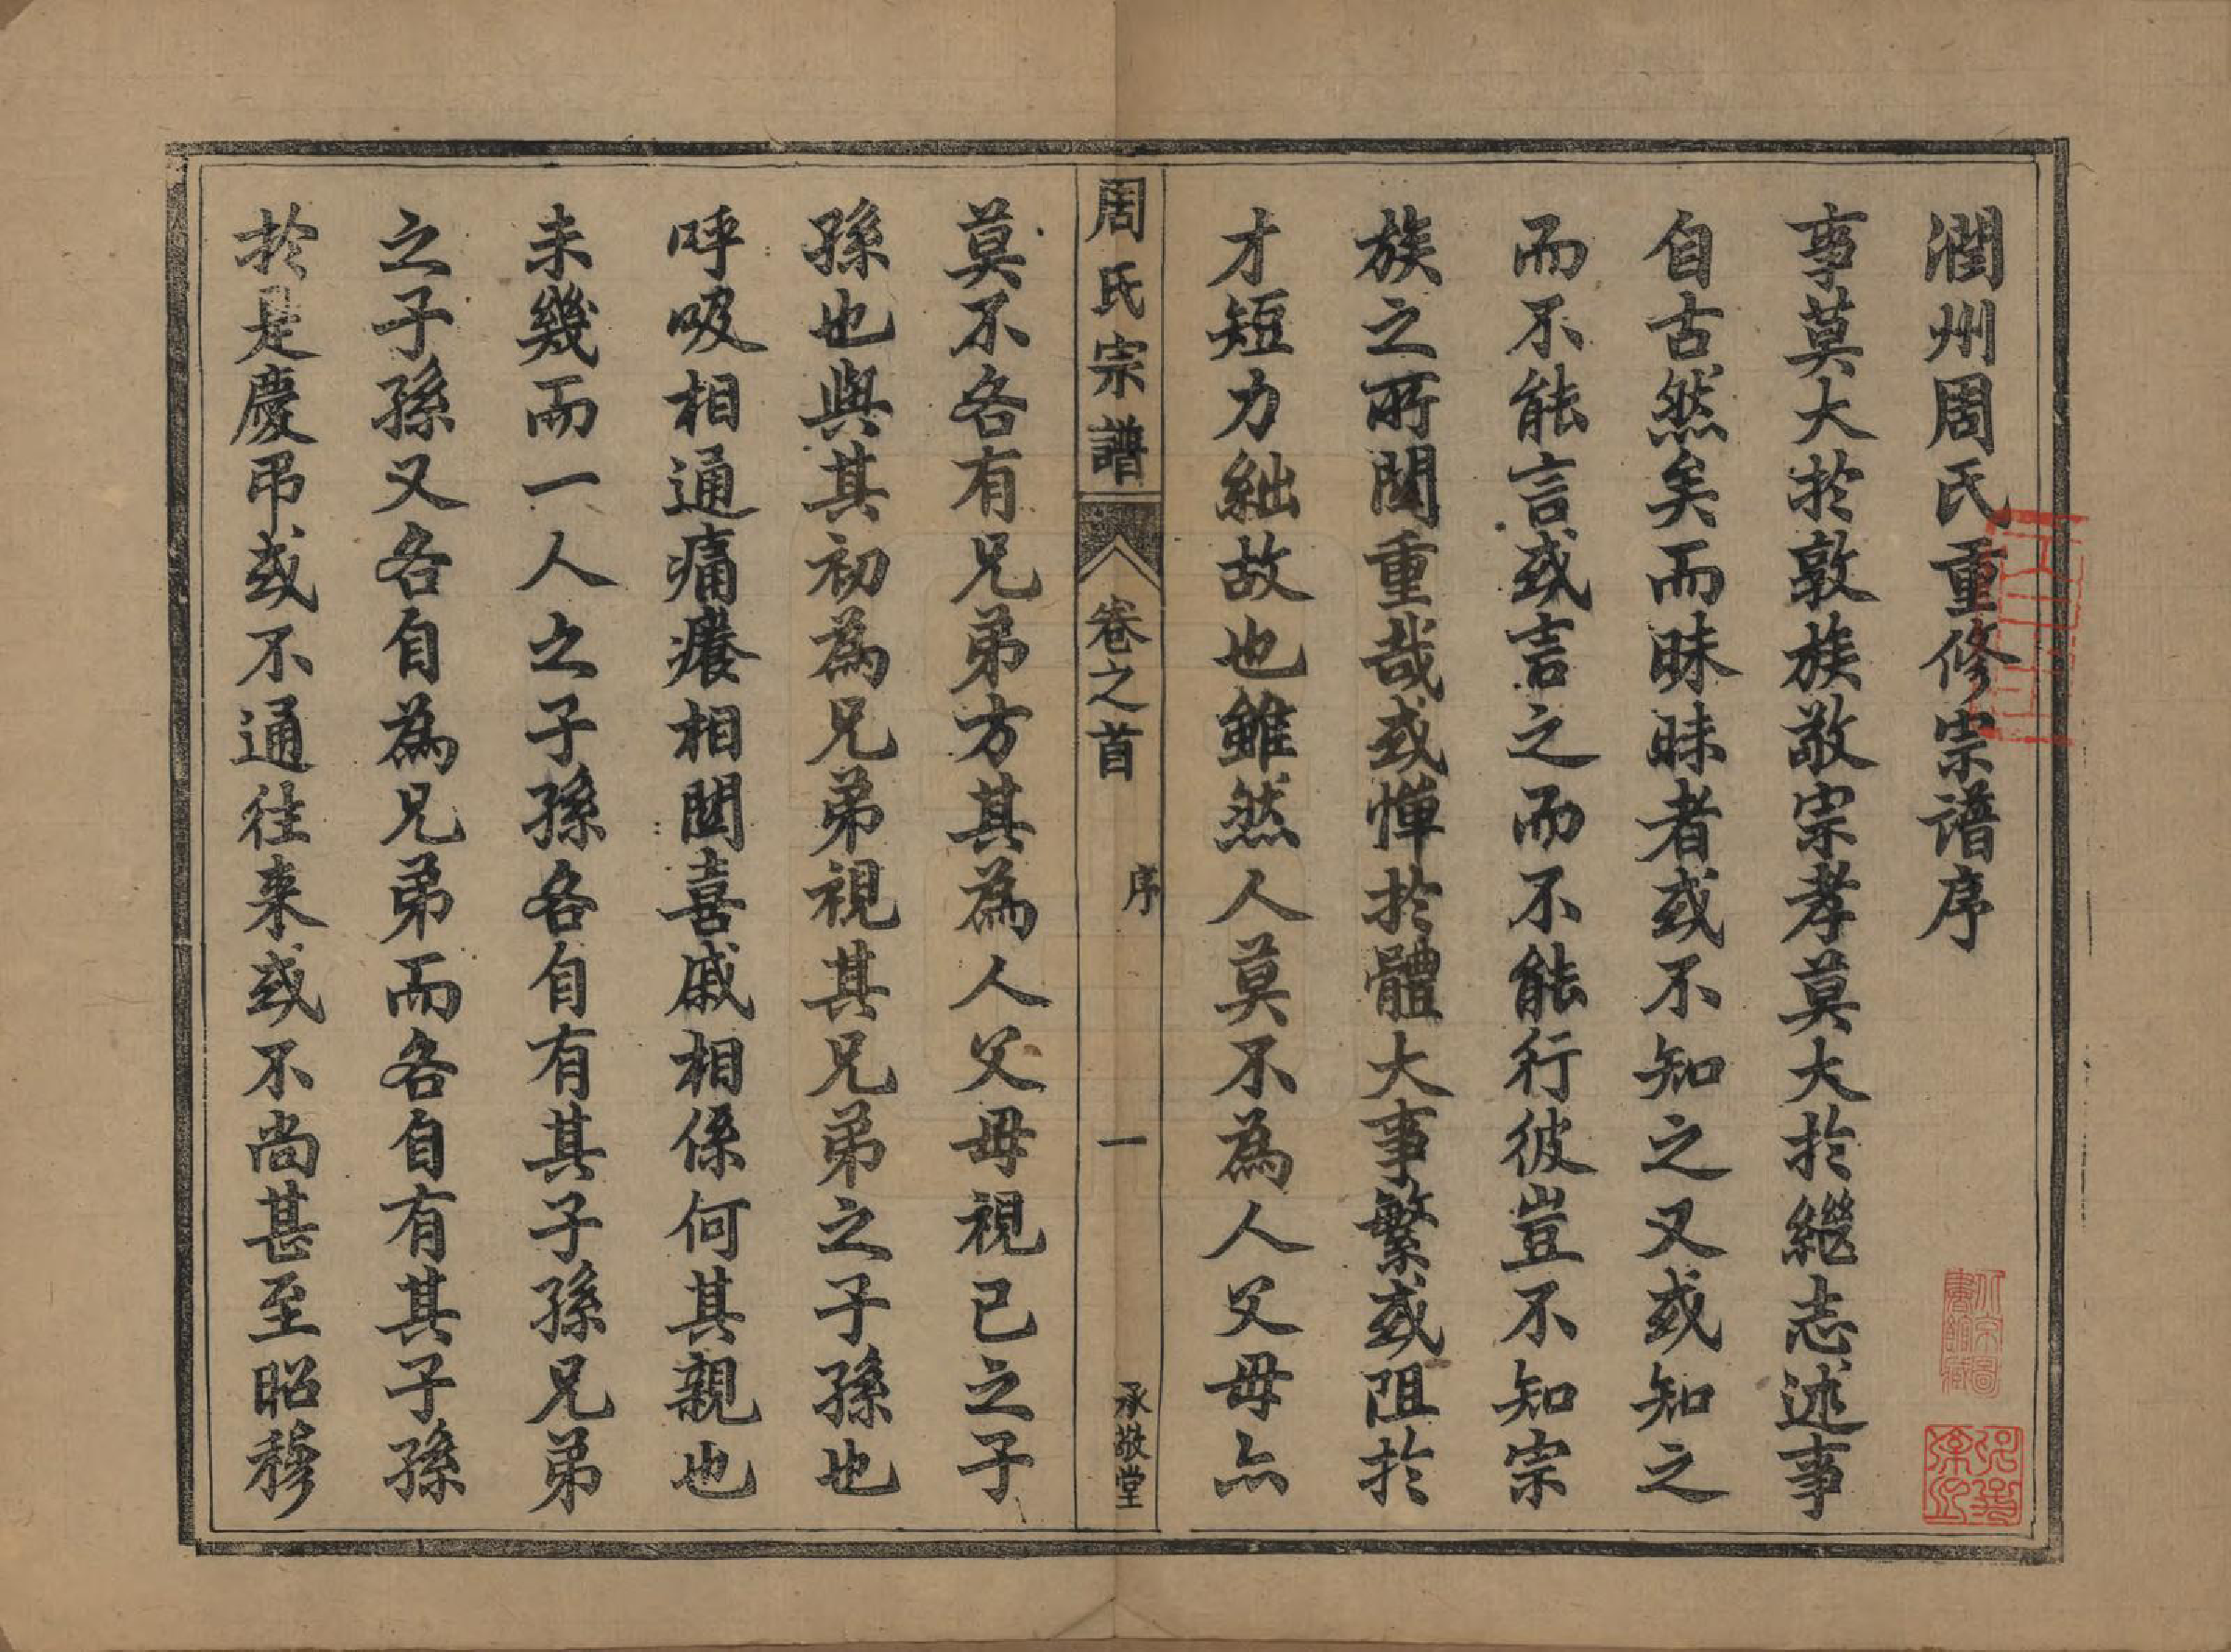 潤州周氏重修宗譜序
事莫大於敦族敬宗孝莫大於繼志述事
自古然矣而昧昧者或不知之又或知之
而不能言或言之而不能行彼豈不知宗
族之所關重哉或憚於體大事繁或阻於
才短力絀故也雖然人莫不為人父母亦
周氏宗譜 卷之首 序 一 承敬堂
莫不各有兄弟方其為人父母視已之子
孫也與其初為兄弟視其兄弟之子孫也
呼吸相通痛癢相關喜戚相係何其親也
未幾而一人之子孫各自有其子孫兄弟
之子孫又各自為兄弟而各自有其子孫
於是慶弔或不通往來或不尚甚至昭穆